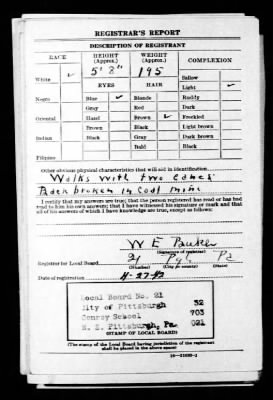 REGISTRAR'S REPORT
DESCRIPTION OF REGISTRANT
RACE HEIGHT (Approx.) WEIGHT (Approx.) COMPLEXION
5' 8" 195
White ✓
EYES HAIR
Sallow
Light ✓
Negro Blue ✓ Blonde Ruddy
Gray Red Dark
Oriental Hazel Brown ✓ Freckled
Brown Black Light brown
Indian Black Gray Dark brown
Bald Black
Filipino
Other obvious physical characteristics that will aid in identification
Walks with two canes
Back broken in Coal Mine
I certify that my answers are true; that the person registered has read or has had read to him his own answers; that I have witnessed his signature or mark and that all of his answers of which I have knowledge are true, except as follows:
W E
(Signature of registrar)
Registrar for Local Board 21 Pgh Pa
(Number) (City or county) (State)
Date of registration 4-27-42
Local Board No. 21 32
City of Pittsburgh 703
Conroy School 021
N. S. Pittsburgh, Pa.
(STAMP OF LOCAL BOARD)
(The stamp of the Local Board having jurisdiction of the registrant shall be placed in the above space.)